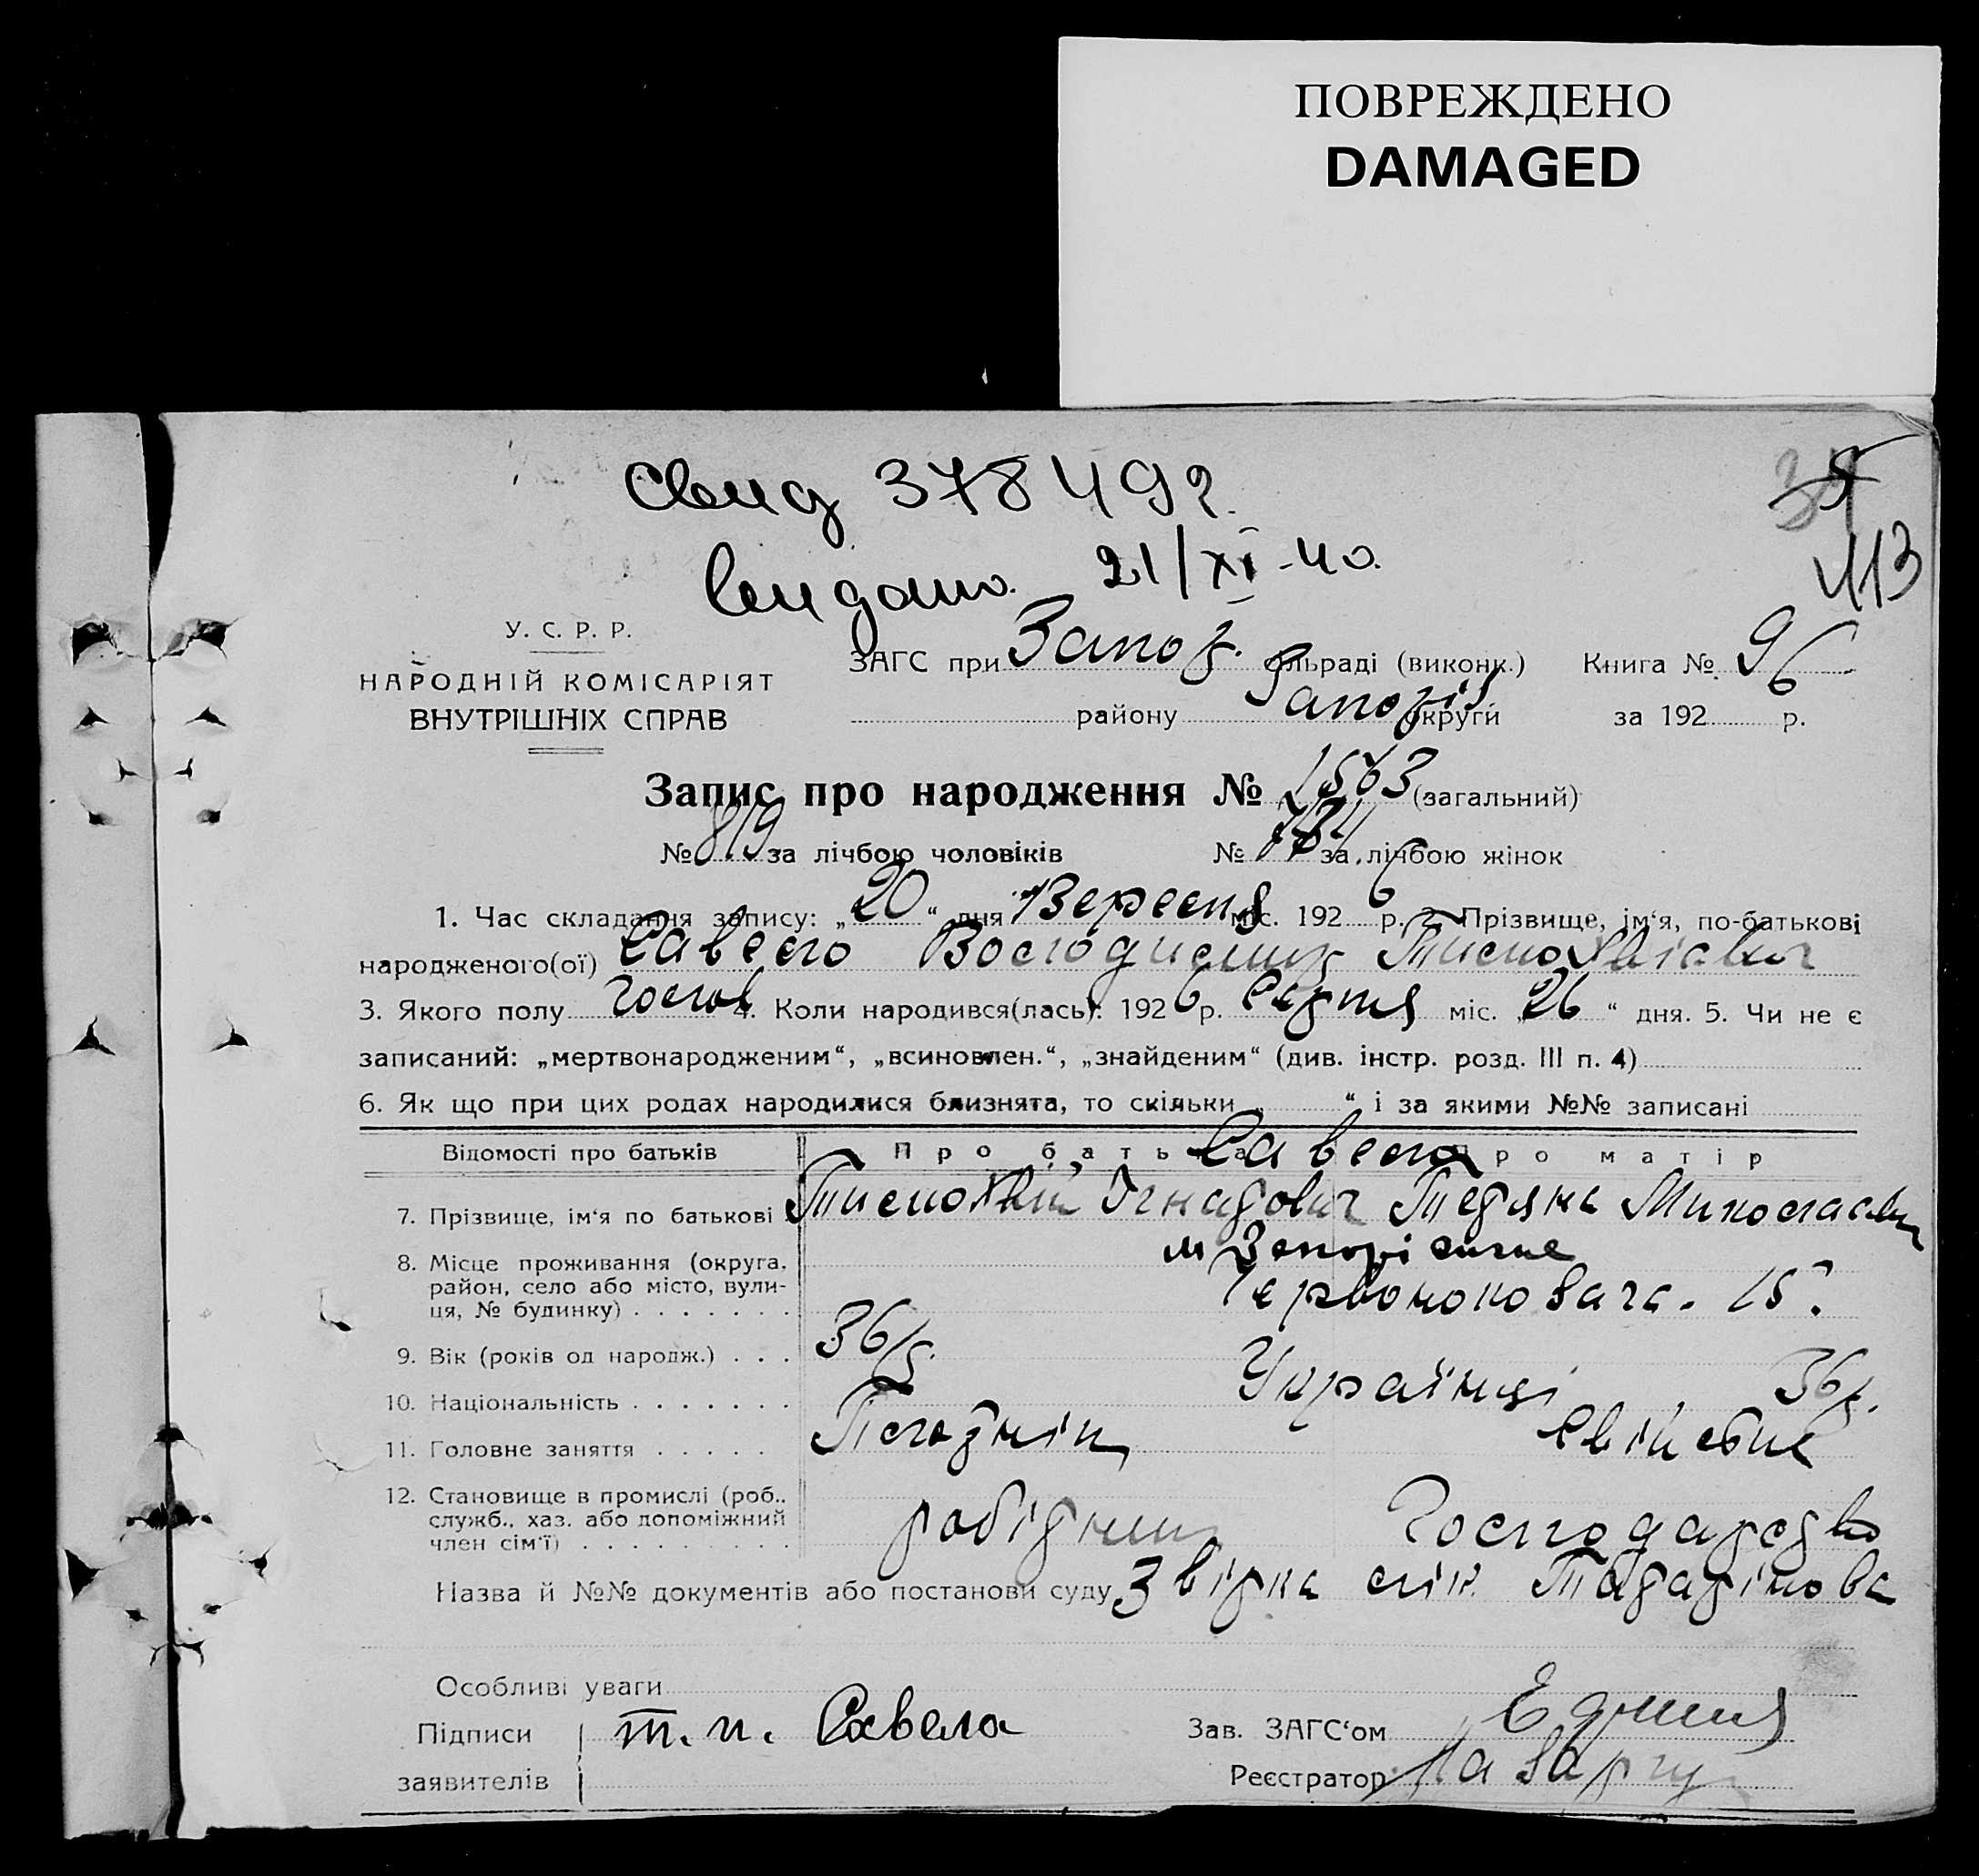 ПОВРЕЖДЕНО
DAMAGED
Свид 378492
видано. 21/XI-40.
413
У. С. Р. Р.
НАРОДНІЙ КОМІСАРІЯТ
ВНУТРІШНІХ СПРАВ
ЗАГС при Запор. сільраді (виконк.) Книга № 9
району округи за 192 6 р.
Запис про народження № 1563 (загальний)
№ 819 за лічбою чоловіків № за лічбою жінок
1. Час складання запису: „20“ дня Вересня міс. 192 6 р. 2. Прізвище, ім‘я, по-батькові
народженого(ої) Савело
3. Якого полу 4. Коли народився(лась): 192 6 р. Серпня міс. „26“ дня. 5. Чи не є
записаний: „мертвонародженим“, „всиновлен.“, „знайденим“ (див. інстр. розд. III п. 4)
6. Як що при цих родах народилися близнята, то скільки „ “ і за якими №№ записані
Відомості про батьків Про батька Савело Про матір
7. Прізвище, ім‘я по батькові Тимофій Тетяна
8. Місце проживання (округа, м Запоріжжє
район, село або місто, вули-
ця, № будинку) 15
9. Вік (років од народж.) 36 р. 36 р.
10. Національність Українці
11. Головне заняття Свійське
12. Становище в промислі (роб., робітник Господарство
служб., хаз. або допоміжний
член сім‘ї)
Назва й №№ документів або постанови суду
Особливі уваги
Підписи т. п. Савела Зав. ЗАГС‘ом
заявителів Реєстратор